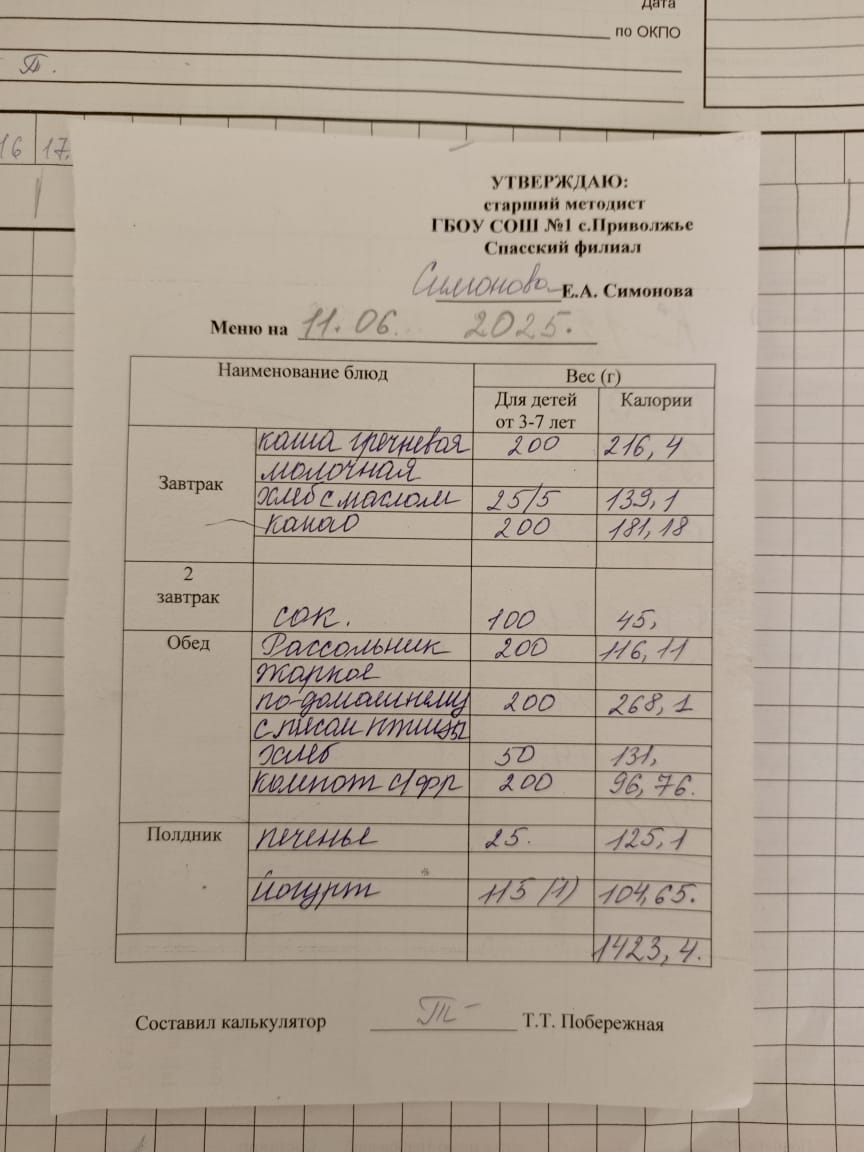 Дата
по ОКПО
Т.
16 17.
УТВЕРЖДАЮ:
старший методист
ГБОУ СОШ №1 с.Приволжье
Спасский филиал
Симонова Е.А. Симонова
Меню на 11.06. 2025.
Наименование блюд Вес (г)
Для детей от 3-7 лет Калории
Завтрак каша гречневая 200 216,4
молочная
хлеб с маслом 25/5 139,1
какао 200 181,18
2 завтрак сок. 100 45,
Обед Рассольник 200 116,11
Жаркое
по-домашнему 200 268,1
с мясом птицы
хлеб 50 131,
компот с/фр 200 96,76.
Полдник печенье 25. 125,1
йогурт 115 (1) 104,65.
1423,4.
Составил калькулятор Т.Т. Побережная